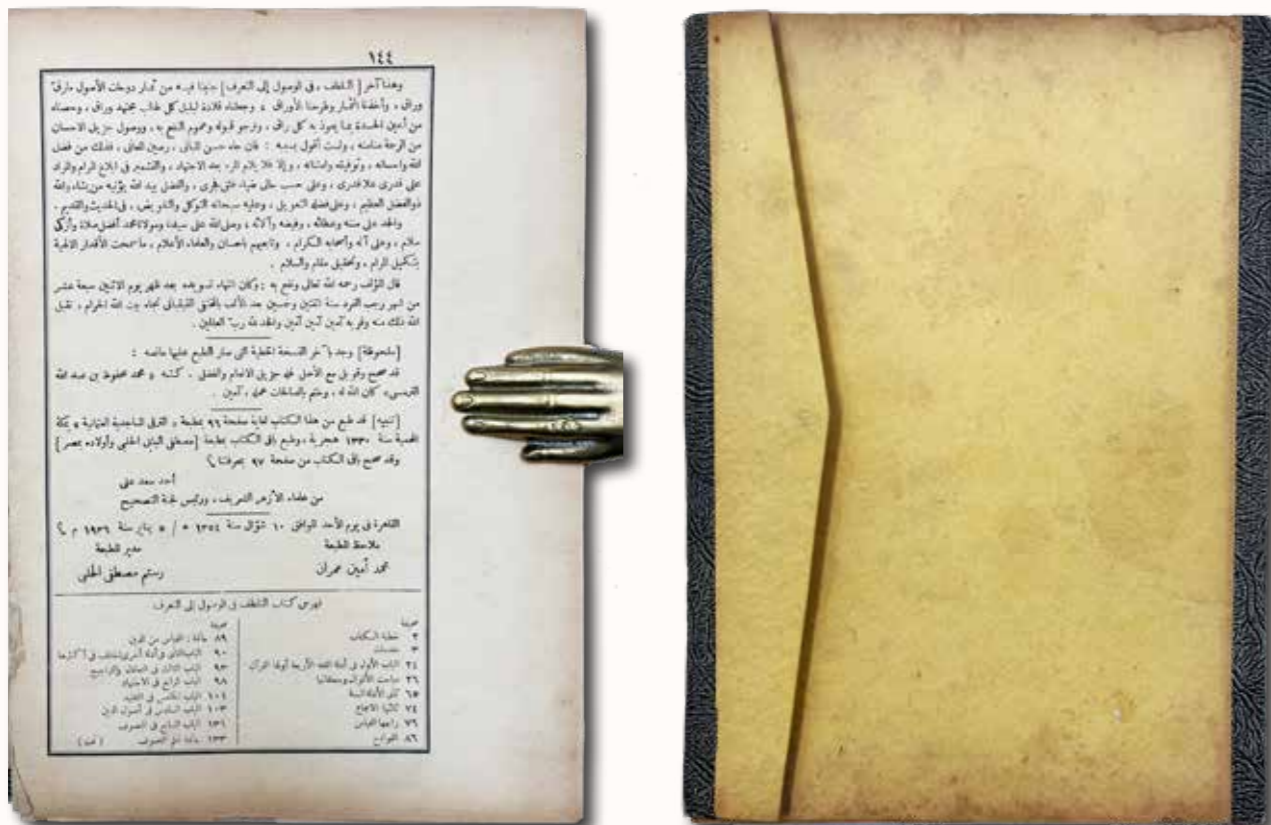 ١٤٤
وهذا آخر [التلطف ، في الوصول إلى التعرف] جنينا فيه من ثمار دوحات الأصول مارق
وراق ، وأخذنا الثمار وطرحنا الأوراق ، وجعلناه قلادة لنبل كل طالب مجتهد وراق ، وحصناه
من أعين الحسدة بما يعوذ به كل راق ، ونرجو قبوله وعموم النفع به ، ووصول جزيل الاحسان
من الرحمة ، ولست أقول : فان جاء حسن المبانى ، رصين المعانى ، فذلك من فضل
الله واحسانه ، وتوفيقه وامتنانه ، وإلا فلا يلام المرء بعد الاجتهاد ، والتشمير في ابلاغ المرام والمراد
على قدرى ، وعلى حسب حالى ، والفضل بيد الله يؤتيه من يشاء والله
ذو الفضل العظيم ، وعلى فضله التعويل ، وعليه سبحانه التوكل والتفويض ، في الحديث والقديم .
والحمد على منه وعطائه ، وفيضه وآلائه ، وصلى الله على سيدنا ومولانا محمد أفضل صلاة وأزكى
سلام ، وعلى آله وأصحابه الكرام ، وتابعيهم باحسان والعلماء الأعلام ، ما سمحت الأقدار الالهية
بتكميل المرام ، وتحقيق مقام والسلام .
قال المؤلف رحمه الله تعالى ونفع به : وكان انتهاء تسويده بعد ظهر يوم الاثنين سبعة عشر
من شهر رجب الفرد سنة اثنتين وخمسين بعد الألف تجاه بيت الله الحرام ، تقبل
الله ذلك منه وقربه آمين آمين آمين والحمد لله رب العالمين .
[ملحوظة] وجد بآخر النسخة الخطية التى صار الطبع عليها مانصه :
قد صحح وقوبل مع الأصل جزيل الانعام والفضل . كتبه ، محمد محفوظ بن عبد الله
الترمسى، كان الله له ، وختم بالصالحات عمله ، آمين .
[تنبيه] قد طبع من هذا الكتاب لغاية صفحة ٩٦ بمطبعة « الترقى الماجدية العثمانية » بمكة
المحمية سنة ١٣٣٠ هجرية ، وطبع باقى الكتاب بمطبعة [مصطفى البابى الحلبى وأولاده بمصر]
وقد صحح باقى الكتاب من صفحة ٩٧ بمعرفتنا ؟
أحمد سعد على
من علماء الأزهر الشريف ، ورئيس لجنة التصحيح
القاهرة فى يوم الأحد الموافق ١٠ شوال سنة ١٣٥٤ ه / ٥ يناير سنة ١٩٣٦ م ؟
ملاحظ المطبعة مدير المطبعة
محمد أمين عمران رستم مصطفى الحلبى
فهرس كتاب التلطف فى الوصول إلى التعرف
صحيفة صحيفة
٢ خطبة الكتاب
٣ مقدمات
٢٤ الباب الأول فى أدلة الفقه الأربعة أولها القرآن
٢٦ مباحث الأقوال ومتعلقاتها
٦٥ ثانى الأدلة السنة
٧٤ ثالثها الاجماع
٧٦ رابعها القياس
٨٦ القوادح
٨٩ خاتمة : القياس من الدين
٩٠ الباب الثانى فى أدلة أخرى اختلف فى أكثرها
٩٣ الباب الثالث فى التعادل والتراجيح
٩٨ الباب الرابع فى الاجتهاد
١٠١ الباب الخامس فى التقليد
١٠٣ الباب السادس فى أصول الدين
١٣١ الباب السابع فى التصوف
١٣٣ خاتمة التصوف (تمت)